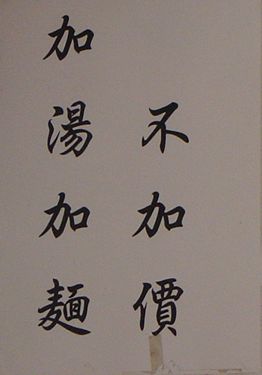 加湯加麵
不加價